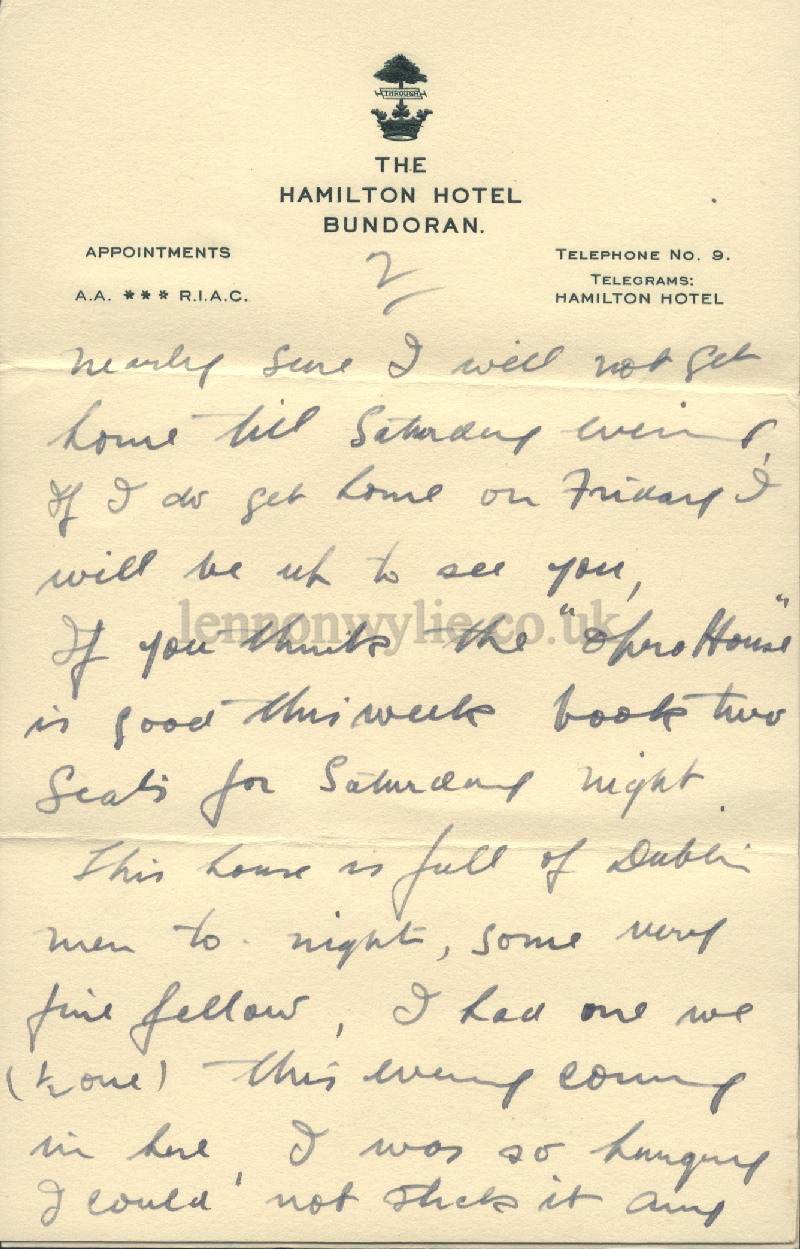 THROUGH
THE
HAMILTON HOTEL
BUNDORAN.
APPOINTMENTS
A.A. *** R.I.A.C.
TELEPHONE NO. 9.
TELEGRAMS:
HAMILTON HOTEL
2
nearly sure I will not get
home till Saturday evening,
If I do get home on Friday I
will be up to see you,
lennonwylie.co.uk
If you think the "Opera House"
is good this week book two
Seats for Saturday night.
This house is full of Dublin
men to night, some very
fine fellow, I had one we
(one) this evening coming
in here, I was so hungry
I could not stick it any